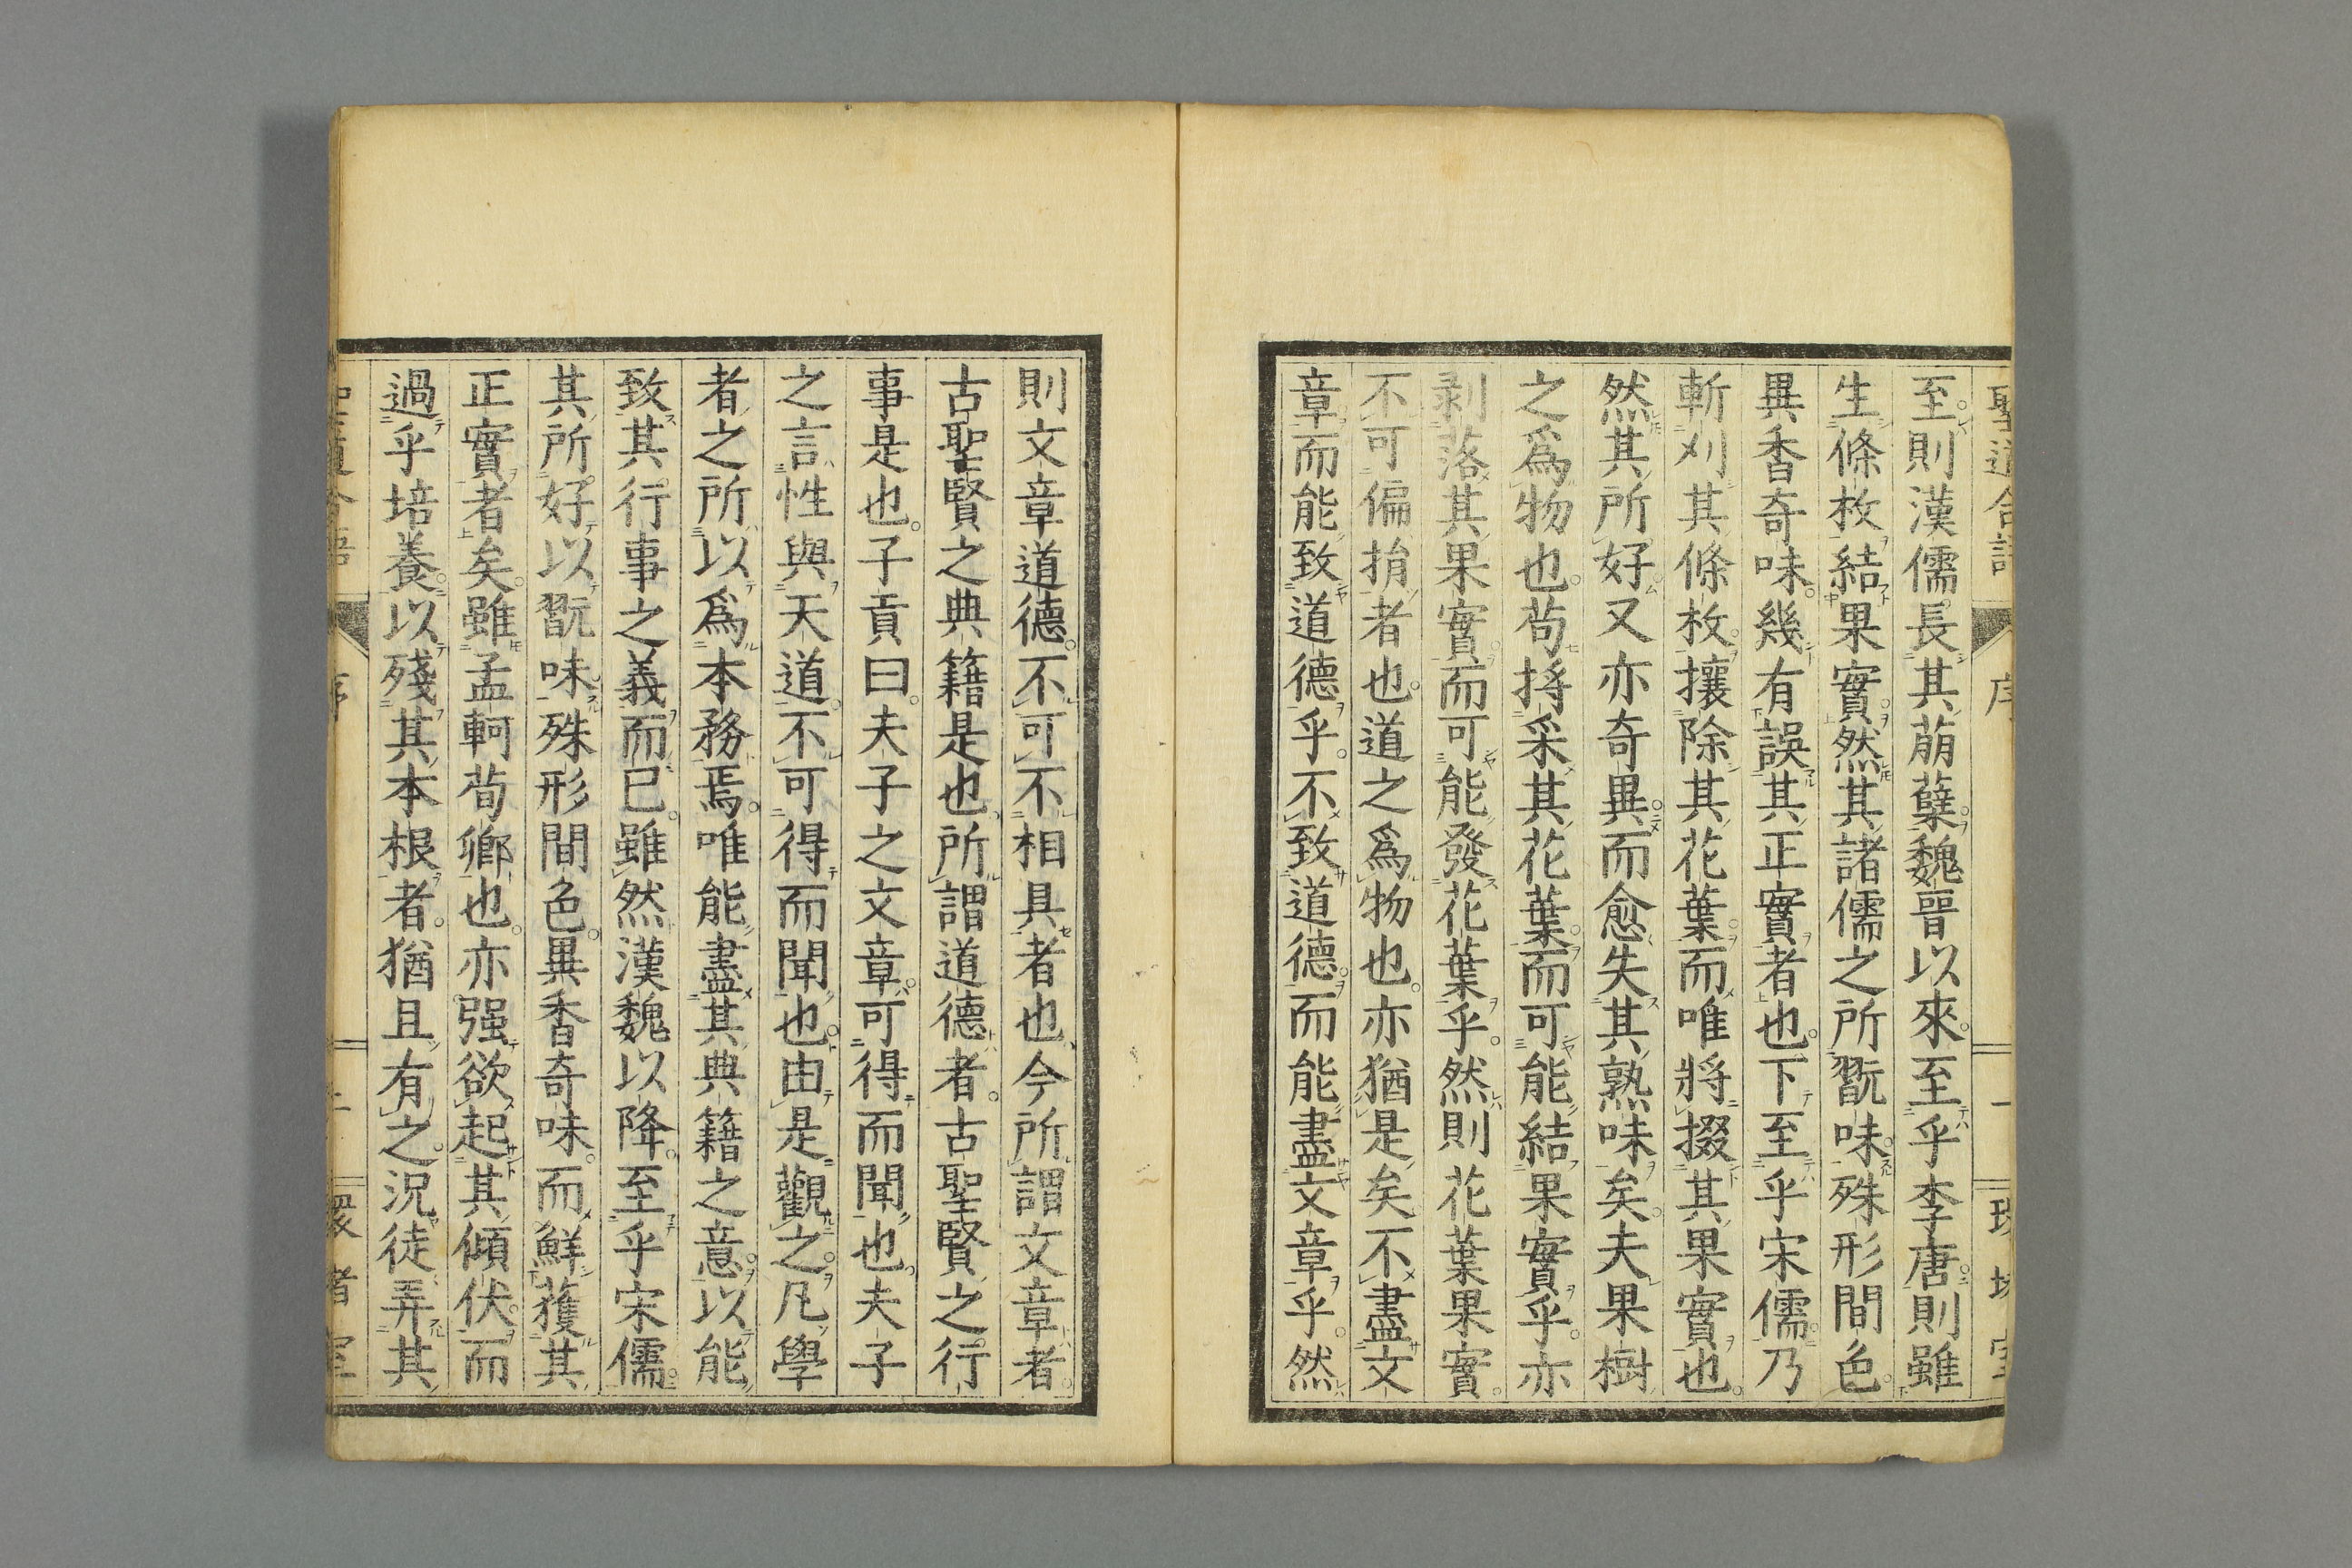 聖道合語 序 一
至則漢儒長其萠蘖魏晉以來至乎李唐則雖
生條枚結果實然其諸儒之所翫味殊形間色
異香奇味幾有誤其正實者也下至乎宋儒乃
斬刈其條枚攘除其花葉而唯將掇其果實也
然其所好又亦奇異而愈失其熟味矣夫果樹
之爲物也苟捋采其花葉而可能結果實乎亦
剥落其果實而可能發花葉乎然則花葉果實
不可偏捐者也道之爲物也亦猶是矣不盡文
章而能致道德乎不致道德而能盡文章乎然
則文章道德不可不相具者也今所謂文章者
古聖賢之典籍是也所謂道德者古聖賢之行
事是也子貢曰夫子之文章可得而聞也夫子
之言性與天道不可得而聞也由是觀之凡學
者之所以爲本務焉唯能盡其典籍之意以能
致其行事之義而已雖然漢魏以降至乎宋儒
其所好以翫味殊形間色異香奇味而鮮獲其
正實者矣雖孟軻荀卿也亦强欲起其傾伏而
過乎培養以殘其本根者猶且有之況徒弄其